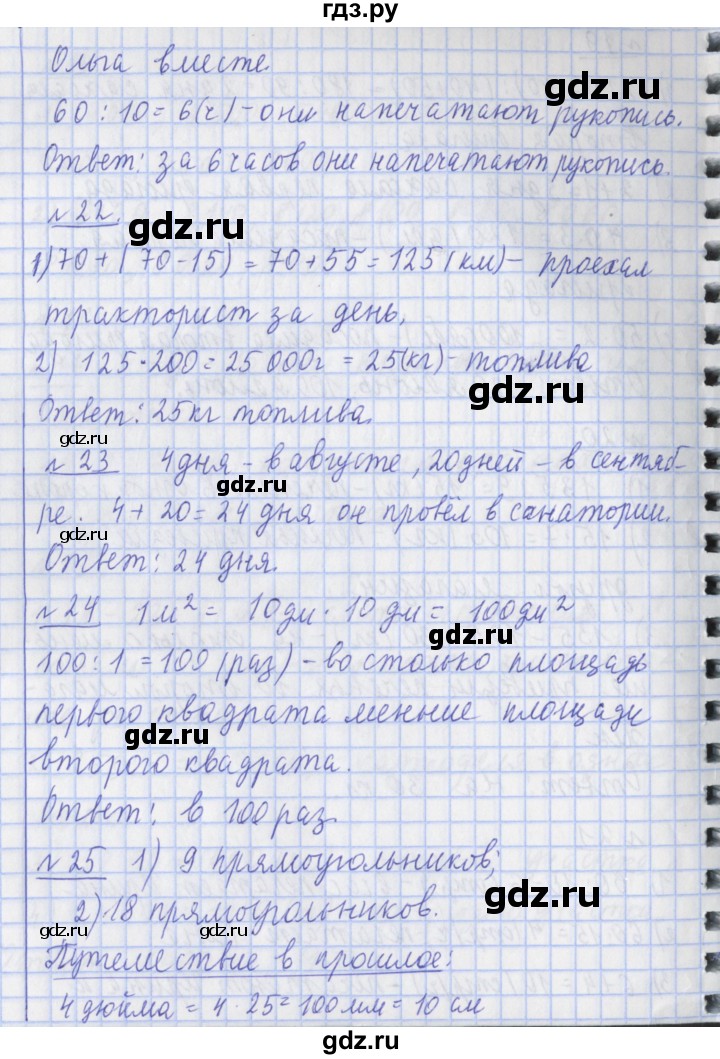 гдз.ру
Ольга вместе.
60 : 10 = 6(ч) – они напечатают рукопись.
Ответ: за 6 часов они напечатают рукопись.
№ 22.
1) 70 + (70 - 15) = 70 + 55 = 125 (км) – проехал
тракторист за день.
2) 125 · 200 = 25 000г = 25(кг) – топлива
Ответ: 25кг топлива.
№ 23 4дня – в августе, 20дней – в сентяб-
ре. 4 + 20 = 24 дня он провёл в санатории.
Ответ: 24 дня.
№ 24 1м² = 10дм · 10 дм = 100дм²
100 : 1 = 100 (раз) – во столько площадь
первого квадрата меньше площади
второго квадрата.
Ответ: в 100 раз
№ 25 1) 9 прямоугольников;
2) 18 прямоугольников.
Путешествие в прошлое:
4 дюйма = 4 · 25 = 100 мм = 10 см
gdz.ru
gdz.ru
gdz.ru
gdz.ru
gdz.ru
gdz.ru
gdz.ru
gdz.ru
gdz.ru
gdz.ru
gdz.ru
gdz.ru
gdz.ru
gdz.ru